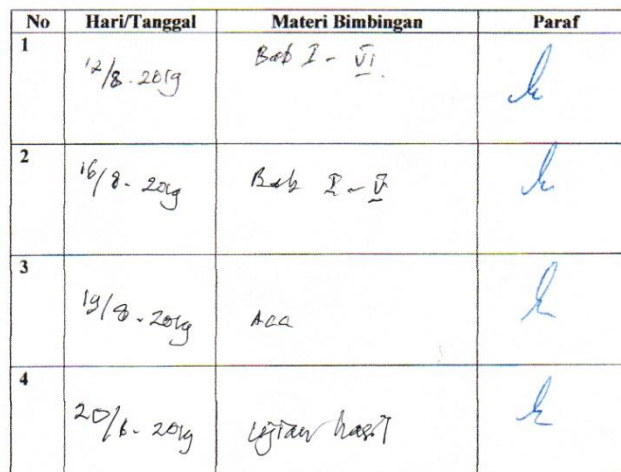 No Hari/Tanggal Materi Bimbingan Paraf
1 12/8-2019 Bab I - VI
2 16/8-2019 Bab I - V
3 19/8-2019 Acc
4 20/8-2019 Ujian hasil